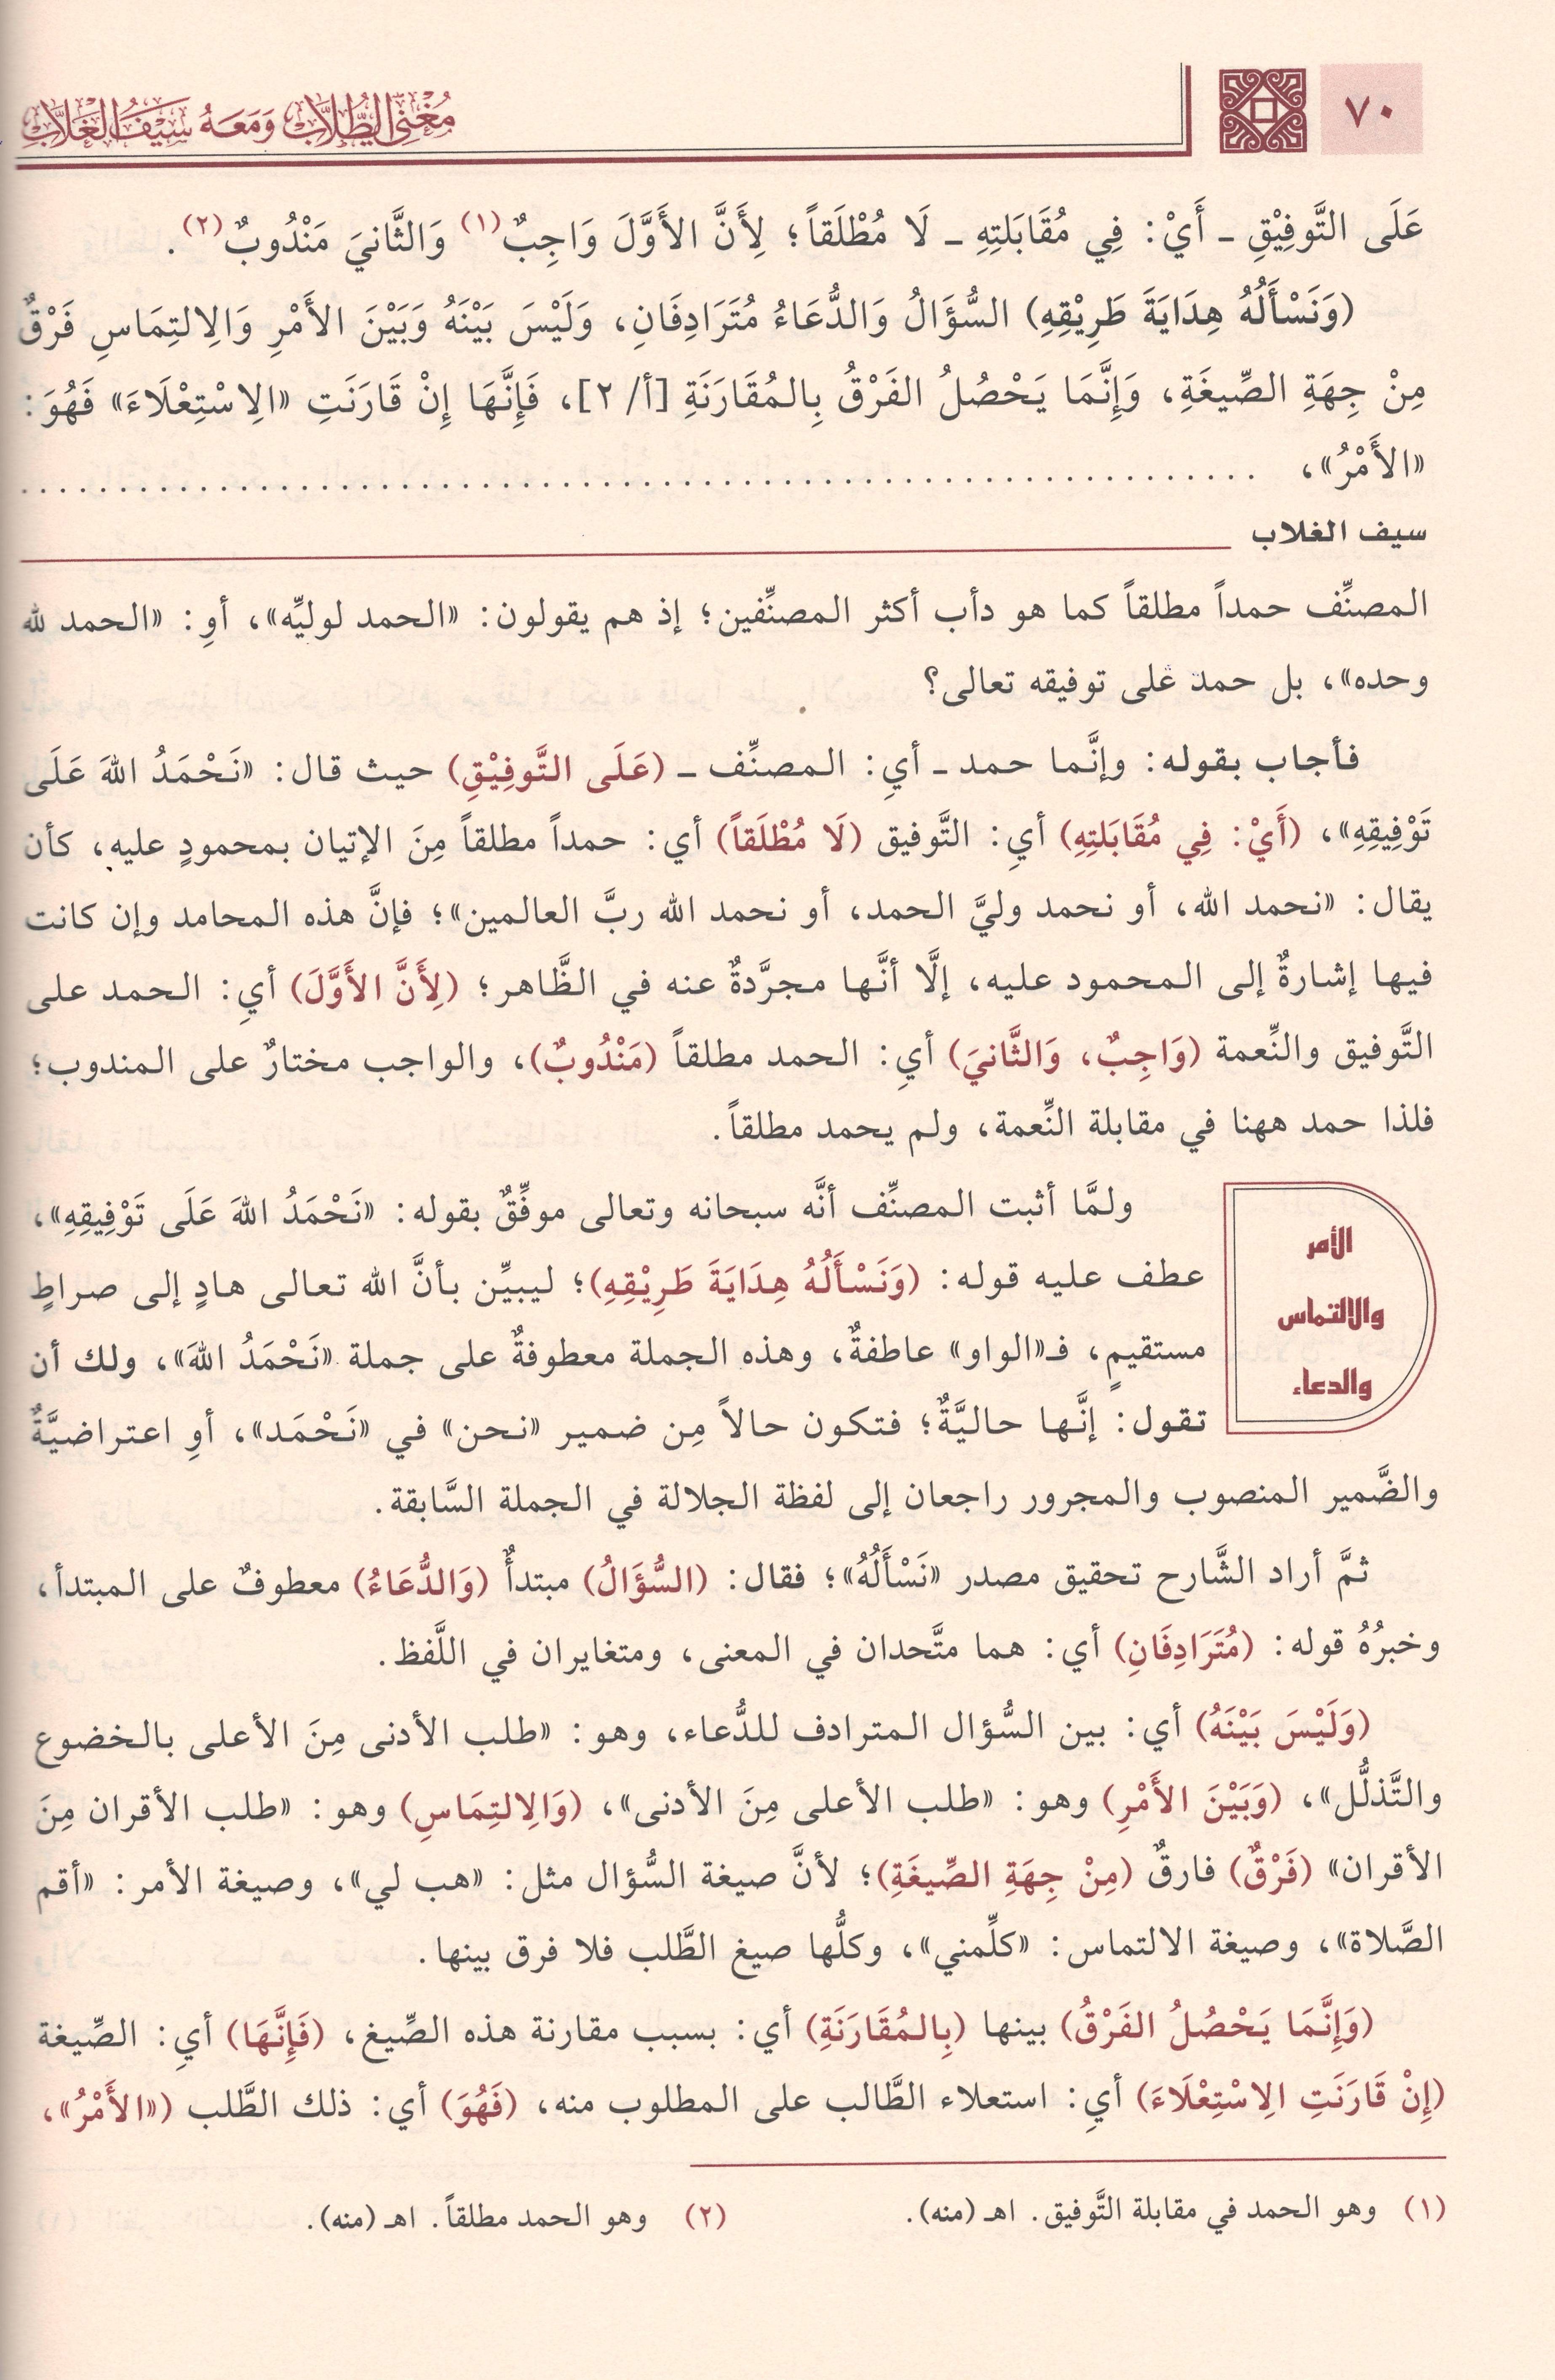 ٧٠
مُغْنِي الطُّلَّابِ وَمَعَهُ سَيْفُ الغَلَّابِ
عَلَى التَّوفِيْقِ ـ أَيْ: فِي مُقَابَلَتِهِ ـ لَا مُطْلَقاً؛ لِأَنَّ الأَوَّلَ وَاجِبٌ(١) وَالثَّانيَ مَنْدُوبٌ(٢).
(وَنَسْأَلُهُ هِدَايَةَ طَرِيْقِهِ) السُّؤَالُ وَالدُّعَاءُ مُتَرَادِفَانِ، وَلَيْسَ بَيْنَهُ وَبَيْنَ الأَمْرِ وَالِالتِمَاسِ فَرْقٌ
مِنْ جِهَةِ الصِّيغَةِ، وَإِنَّمَا يَحْصُلُ الفَرْقُ بِالمُقَارَنَةِ [أ/ ٢]، فَإِنَّهَا إِنْ قَارَنَتِ «الِاسْتِعْلَاءَ» فَهُوَ:
«الأَمْرُ»، ....................................................
سيف الغلاب
المصنِّف حمداً مطلقاً كما هو دأب أكثر المصنِّفين؛ إذ هم يقولون: «الحمد لوليِّه»، أوِ: «الحمد لله
وحده»، بل حمد على توفيقه تعالى؟
فأجاب بقوله: وإنَّما حمد ـ أيِ: المصنِّف ـ (عَلَى التَّوفِيْقِ) حيث قال: «نَحْمَدُ اللهَ عَلَى
تَوْفِيقِهِ»، (أَيْ: فِي مُقَابَلتِهِ) أيِ: التَّوفيق (لَا مُطْلَقاً) أي: حمداً مطلقاً مِنَ الإتيان بمحمودٍ عليه، كأن
يقال: «نحمد الله، أو نحمد وليَّ الحمد، أو نحمد الله ربَّ العالمين»؛ فإنَّ هذه المحامد وإن كانت
فيها إشارةٌ إلى المحمود عليه، إلَّا أنَّها مجرَّدةٌ عنه في الظَّاهر؛ (لِأَنَّ الأَوَّلَ) أيِ: الحمد على
التَّوفيق والنِّعمة (وَاجِبٌ، وَالثَّانيَ) أيِ: الحمد مطلقاً (مَنْدُوبٌ)، والواجب مختارٌ على المندوب؛
فلذا حمد ههنا في مقابلة النِّعمة، ولم يحمد مطلقاً.
الأمر
والالتماس
والدعاء
ولمَّا أثبت المصنِّف أنَّه سبحانه وتعالى موفِّقٌ بقوله: «نَحْمَدُ اللهَ عَلَى تَوْفِيقِهِ»،
عطف عليه قوله: (وَنَسْأَلُهُ هِدَايَةَ طَرِيْقِهِ)؛ ليبيِّن بأنَّ الله تعالى هادٍ إلى صراطٍ
مستقيمٍ، فـ«الواو» عاطفةٌ، وهذه الجملة معطوفةٌ على جملة «نَحْمَدُ اللهَ»، ولك أن
تقول: إنَّها حاليَّةٌ؛ فتكون حالاً مِن ضمير «نحن» في «نَحْمَد»، أوِ اعتراضيَّةٌ
والضَّمير المنصوب والمجرور راجعان إلى لفظة الجلالة في الجملة السَّابقة.
ثمَّ أراد الشَّارح تحقيق مصدر «نَسْأَلُهُ»؛ فقال: (السُّؤَالُ) مبتدأٌ (وَالدُّعَاءُ) معطوفٌ على المبتدأ،
وخبرُهُ قوله: (مُتَرَادِفَانِ) أي: هما متَّحدان في المعنى، ومتغايران في اللَّفظ.
(وَلَيْسَ بَيْنَهُ) أي: بين السُّؤال المترادف للدُّعاء، وهو: «طلب الأدنى مِنَ الأعلى بالخضوع
والتَّذلُّل»، (وَبَيْنَ الأَمْرِ) وهو: «طلب الأعلى مِنَ الأدنى»، (وَالِالتِمَاسِ) وهو: «طلب الأقران مِنَ
الأقران» (فَرْقٌ) فارقٌ (مِنْ جِهَةِ الصِّيغَةِ)؛ لأنَّ صيغة السُّؤال مثل: «هب لي»، وصيغة الأمر: «أقم
الصَّلاة»، وصيغة الالتماس: «كلِّمني»، وكلُّها صيغ الطَّلب فلا فرق بينها.
(وَإِنَّمَا يَحْصُلُ الفَرْقُ) بينها (بِالمُقَارَنَةِ) أي: بسبب مقارنة هذه الصِّيغ، (فَإِنَّهَا) أيِ: الصِّيغة
(إِنْ قَارَنَتِ الِاسْتِعْلَاءَ) أيِ: استعلاء الطَّالب على المطلوب منه، (فَهُوَ) أي: ذلك الطَّلب («الأَمْرُ»،
(١) وهو الحمد في مقابلة التَّوفيق. اهـ (منه).
(٢) وهو الحمد مطلقاً. اهـ (منه).